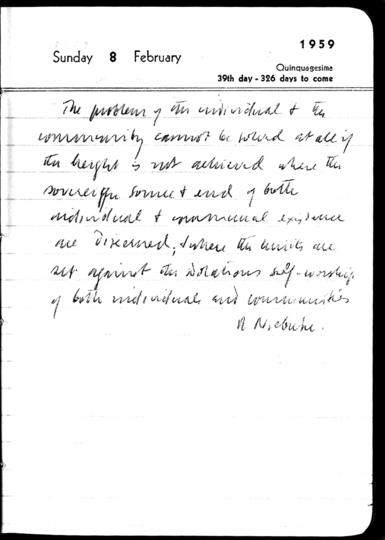 1959
Sunday 8 February
Quinquagesima
39th day - 326 days to come
The problem of the individual & the
community cannot be solved at all if
the height is not achieved where the
sovereign source & end of both
individual & communal existence
are discerned, & where the limits are
set against the idolatrous self-worship
of both individuals and communities
R Niebuhr.